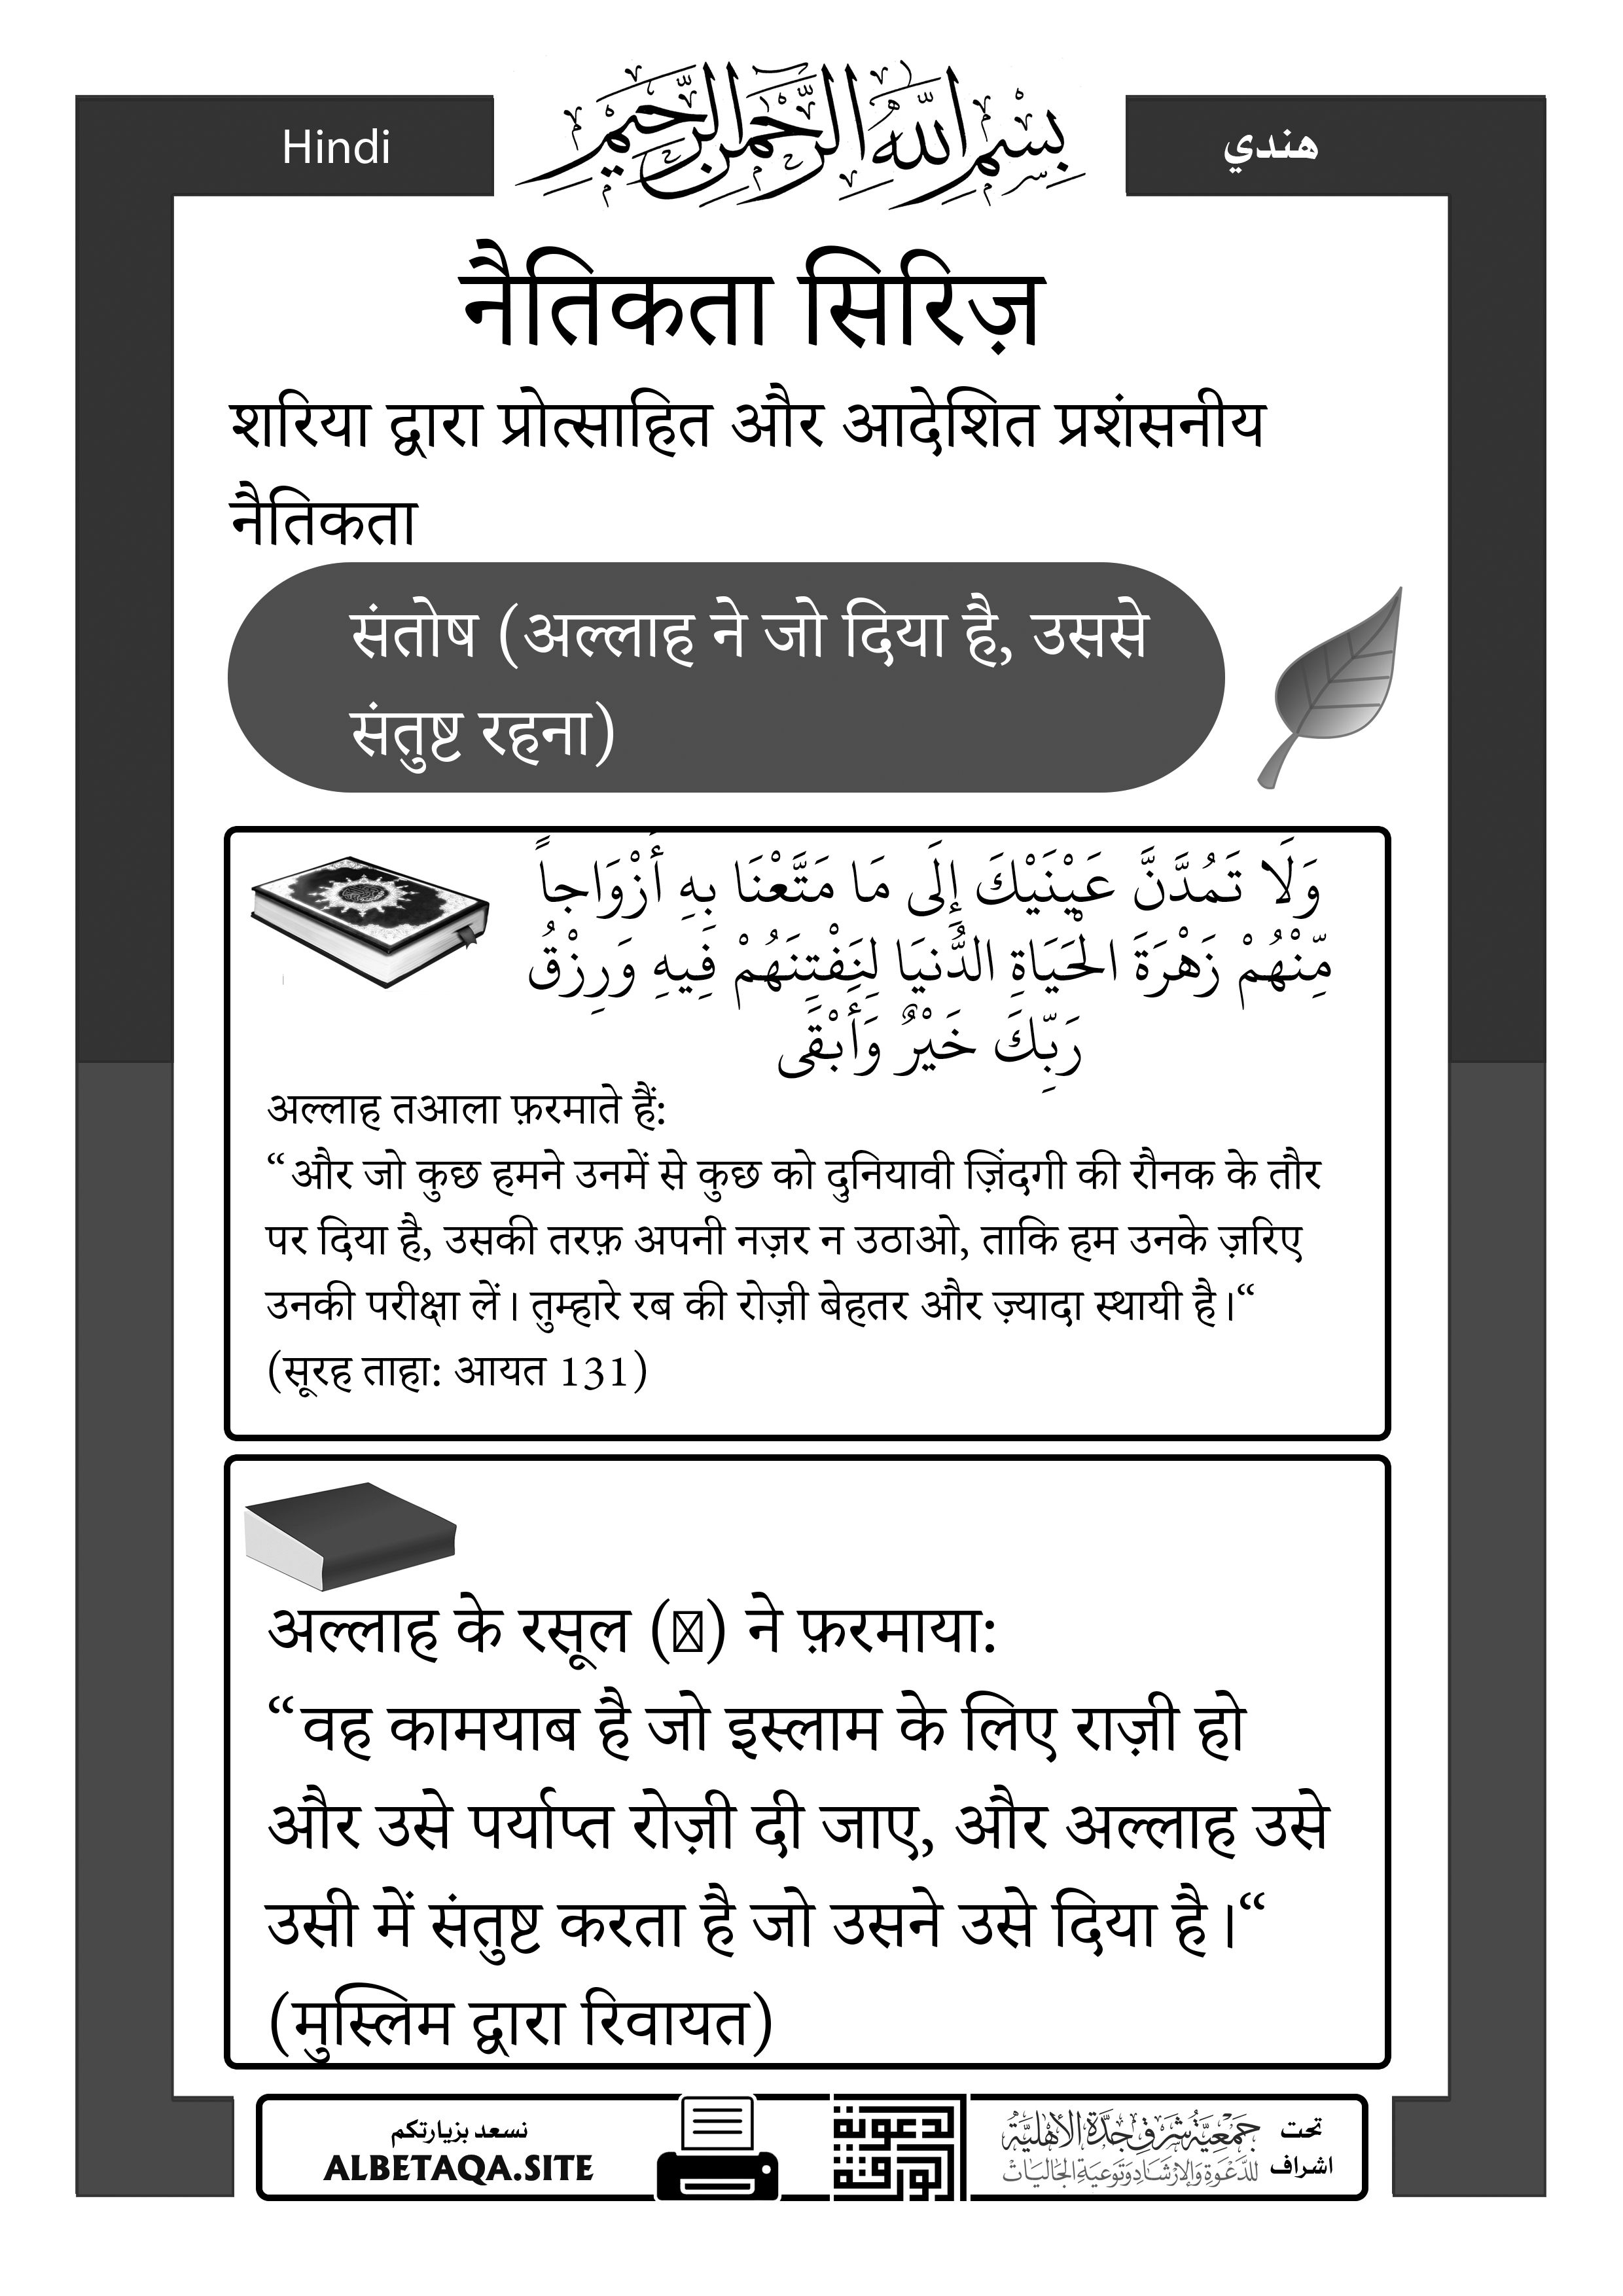 Hindi
بِسْمِ اللَّهِ الرَّحْمَٰنِ الرَّحِيمِ
هندي
नैतिकता सिरिज़
शरिया द्वारा प्रोत्साहित और आदेशित प्रशंसनीय
नैतिकता
संतोष (अल्लाह ने जो दिया है, उससे
संतुष्ट रहना)
وَلَا تَمُدَّنَّ عَيْنَيْكَ إِلَى مَا مَتَّعْنَا بِهِ أَزْوَاجاً
مِّنْهُمْ زَهْرَةَ الْحَيَاةِ الدُّنيَا لِنَفْتِنَهُمْ فِيهِ وَرِزْقُ
رَبِّكَ خَيْرٌ وَأَبْقَى
अल्लाह तआला फ़रमाते हैं:
“और जो कुछ हमने उनमें से कुछ को दुनियावी ज़िंदगी की रौनक के तौर
पर दिया है, उसकी तरफ़ अपनी नज़र न उठाओ, ताकि हम उनके ज़रिए
उनकी परीक्षा लें। तुम्हारे रब की रोज़ी बेहतर और ज़्यादा स्थायी है।“
(सूरह ताहा: आयत 131)
अल्लाह के रसूल () ने फ़रमाया:
“वह कामयाब है जो इस्लाम के लिए राज़ी हो
और उसे पर्याप्त रोज़ी दी जाए, और अल्लाह उसे
उसी में संतुष्ट करता है जो उसने उसे दिया है।“
(मुस्लिम द्वारा रिवायत)
نسعد بزيارتكم
ALBETAQA.SITE
الدعوية
الورقية
تحت
اشراف
جمعية شرق جدة الأهلية
للدعوة والإرشاد وتوعية الجاليات